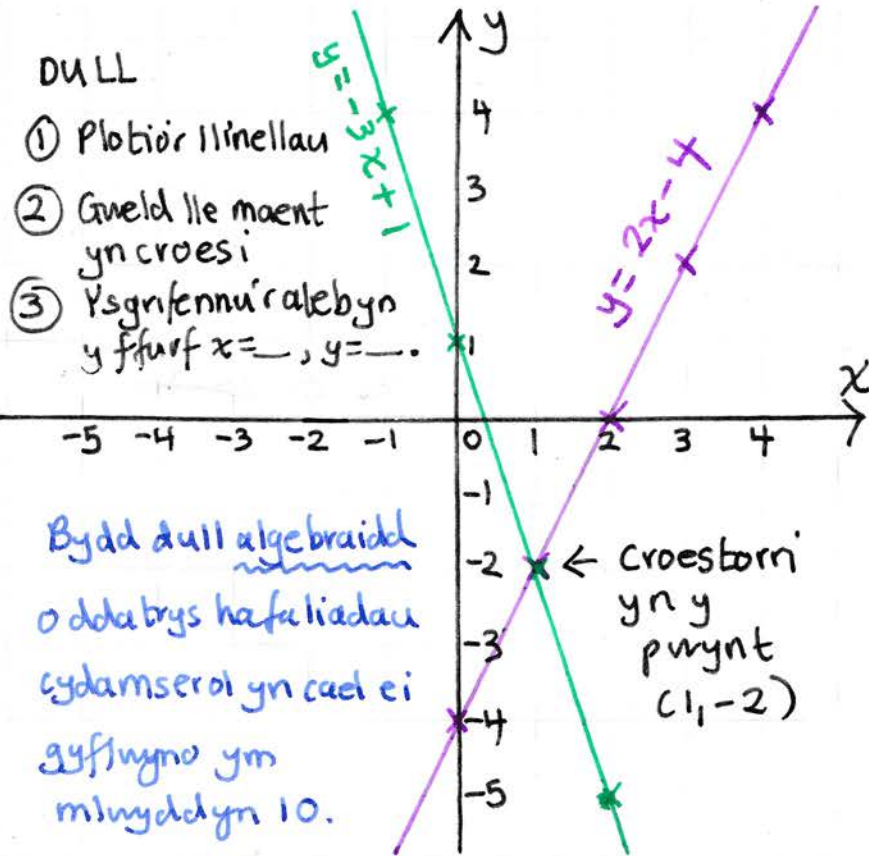 DULL
① Plotio'r llinellau
② Gweld lle maent
yn croesi
③ Ysgrifennu'r ateb yn
y ffurf x=__, y=__.
y=-3x+1
y=2x-4
y
x
4
3
2
1
-5 -4 -3 -2 -1 0 1 2 3 4
-1
-2
-3
-4
-5
← Croestorri
yn y
pwynt
(1,-2)
Bydd dull algebraidd
o ddatrys hafaliadau
cydamserol yn cael ei
gyflwyno ym
mlwyddyn 10.